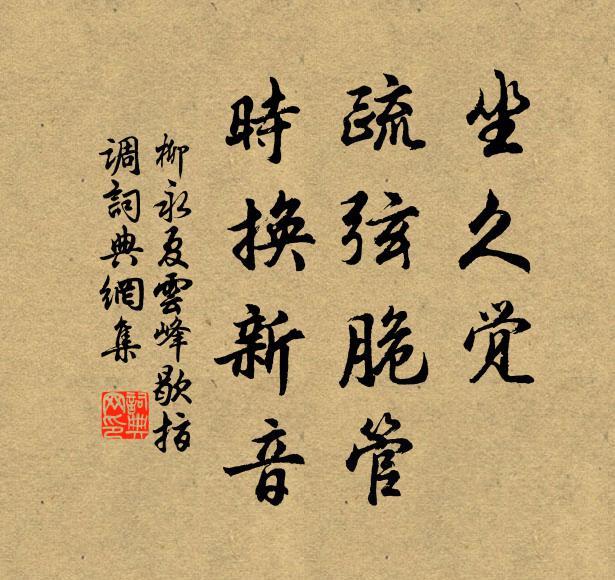 坐久觉
疏弦脆管
時换新音
柳永夏雲峰歇指
调詞典網集
詞典网印